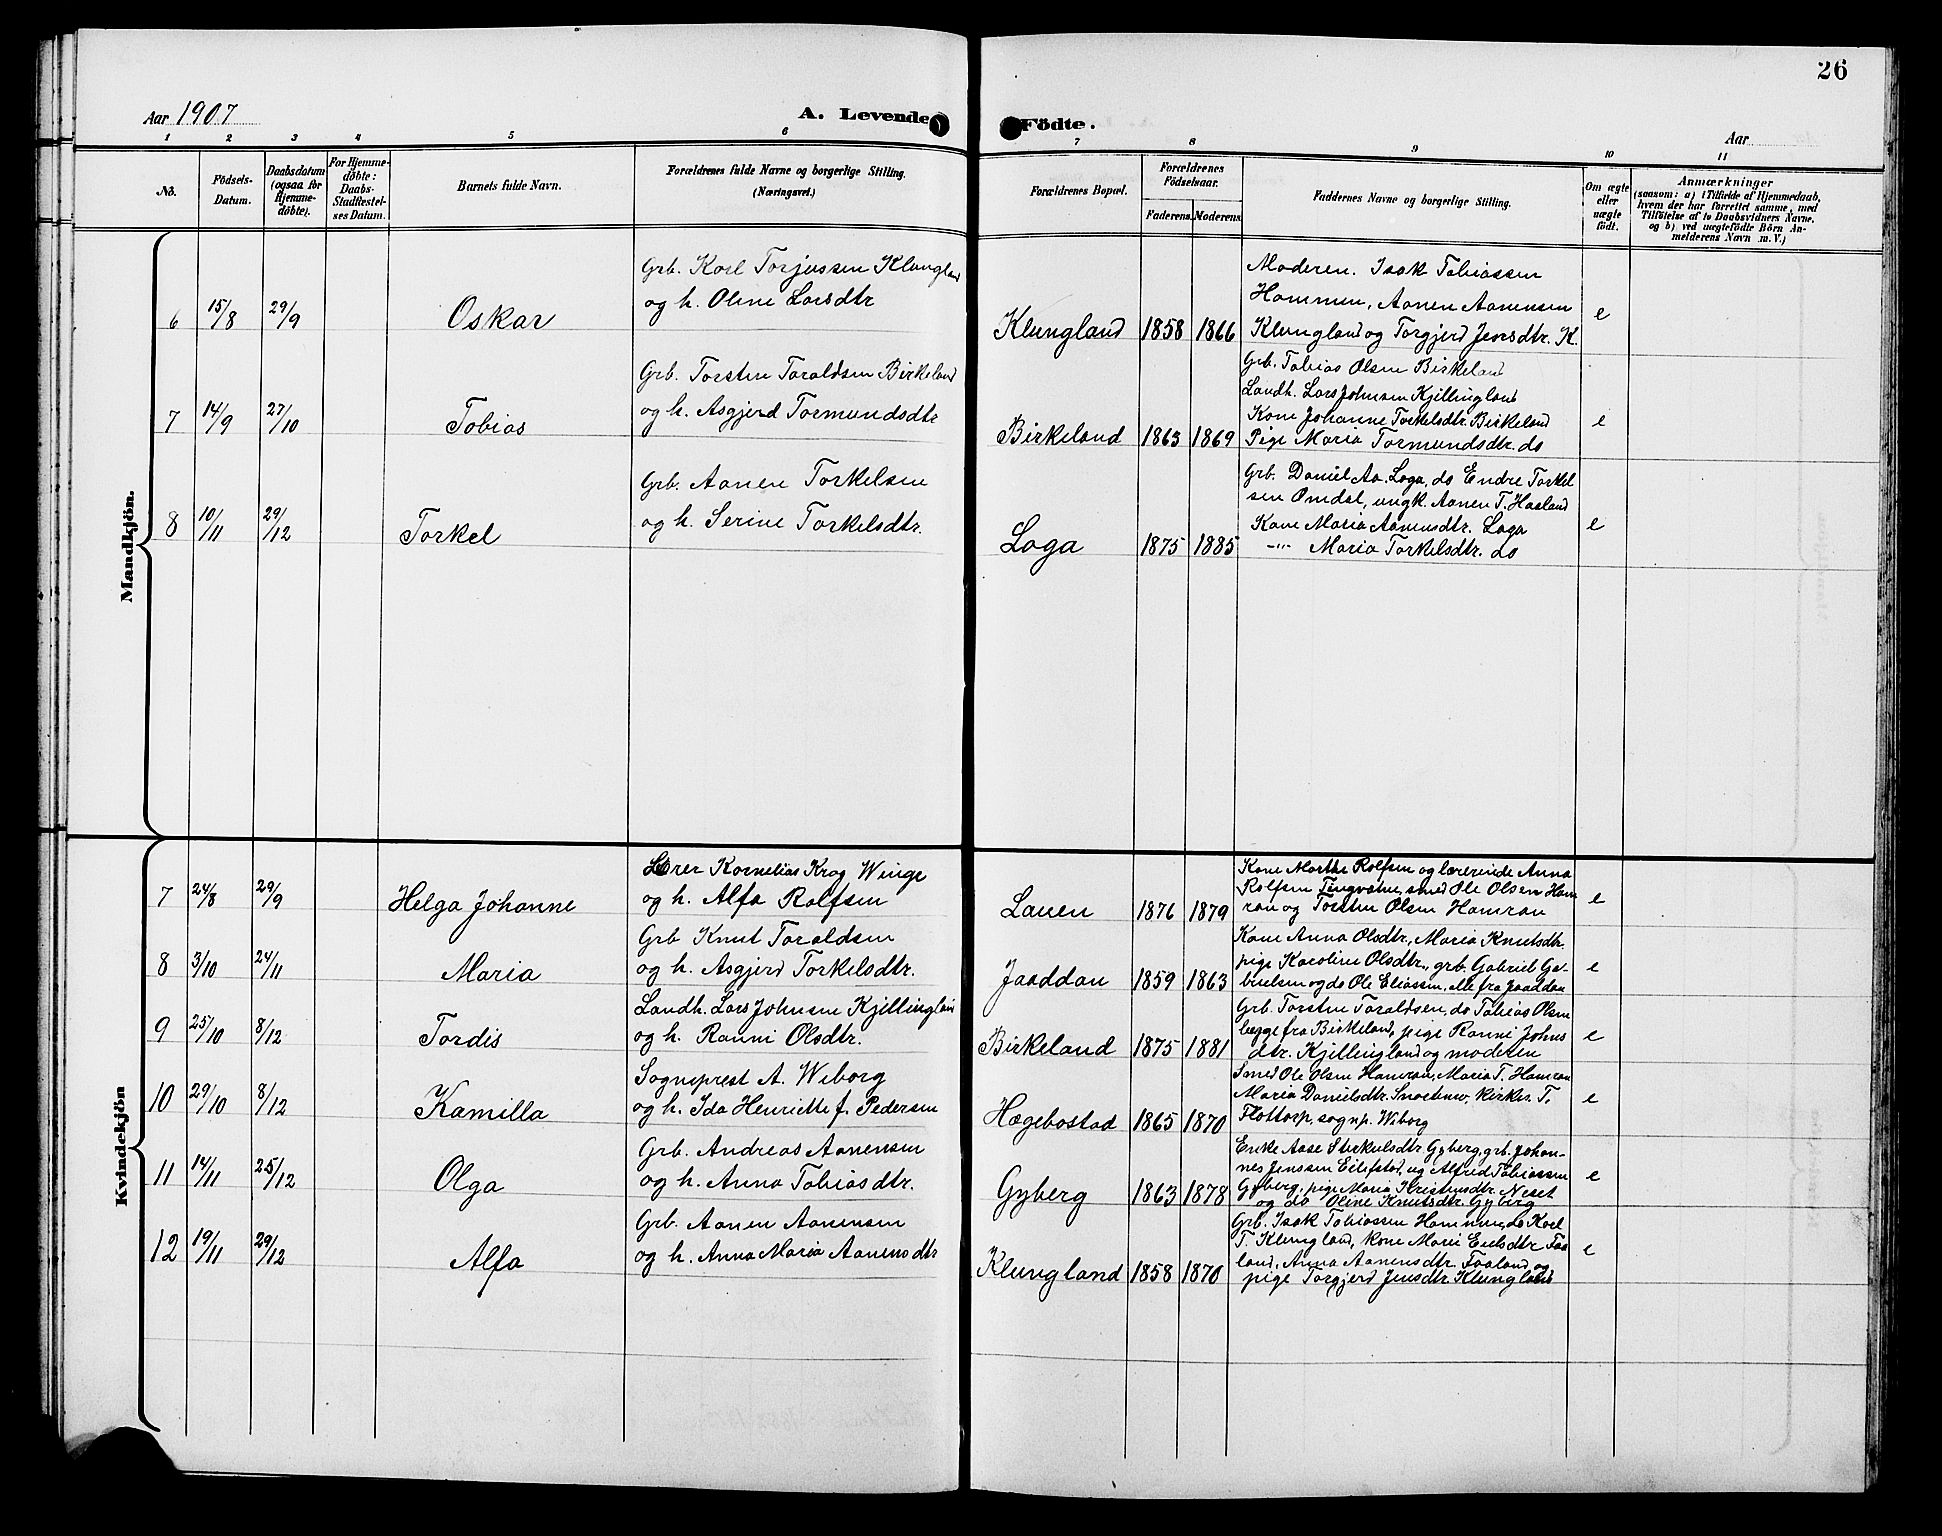 26
Aar 1907
A. Levende Födte.
Aar
1 2 3 4 5 6 7 8 9 10 11
No.
Födsels-
Datum.
Daabsdatum
(ogsaa for
Hjemme-
döbte).
For Hjemme-
döbte:
Daabs-
Stadfæstel-
ses Datum.
Barnets fulde Navn.
Forældrenes fulde Navne og borgerlige Stilling.
(Næringsvei.)
Forældrenes Bopæl.
Forældrenes
Födselsaar.
Faderens. Moderens.
Faddernes Navne og borgerlige Stilling.
Om ægte
eller
uægte
födt.
Anmærkninger
(saasom: a) i Tilfælde af Hjemmedaab,
hvem der har forrettet samme, med
Tilföielse af to Daabsvidners Navne,
og b) ved uægtefödte Börn An-
melderens Navn m. V.)
Mandkjön.
6 15/8 29/9 Oskar
Grb. Karl Torjussen Klungland
og h. Oline Larsdtr
Klungland 1858 1866
Moderen. Isak Tobiassen
Hommen, Aanen Aanensen
Klungland og Torgjerd Jensdtr. K.
e
7 14/9 27/10 Tobias
Grb. Torsten Taraldsen Birkeland
og h. Asgjerd Tormundsdtr
Birkeland 1863 1869
Grb. Tobias Olsen Birkeland
Landh. Lars Johnsen Kjillingland
Kone Johanne Torkelsdtr. Birkeland
Pige Maria Tormundsdtr. do
e
8 10/11 29/12 Torkel
Grb. Aanen Torkelsen
og h. Serine Torkelsdtr.
Loga 1875 1885
Grb. Daniel Aa. Loga, do Endre Torkel
sen Omdal, ungk. Aanen T. Haaland
Kone Maria Aanensdtr. Loga
-"- Maria Torkelsdtr. do
e
Kvindekjön
7 24/8 29/9 Helga Johanne
Lærer Kornelius Krog Winge
og h. Alfa Rolfsen
Lauen 1876 1879
Kone Marthe Rolfsen og lærerinde Anna
Rolfsen Tingvatne, smed Ole Olsen Ham
ran og Torsten Olsen Hamran
e
8 3/10 24/11 Maria
Grb Knut Taraldsen
og h. Asgjerd Torkelsdtr.
Jaaddan 1859 1863
Kone Anna Olsdtr., Maria Knutsdtr.
pige Karoline Olsdtr., grb. Gabriel Ga-
brielsen og do Ole Eliassen, alle fra Jaaddan
e
9 25/10 8/12 Tordis
Landh. Lars Johnsen Kjillingland
og h. Ranni Olsdtr.
Birkeland 1875 1881
Grb. Torsten Taraldsen, do Tobias Olsen
begge fra Birkeland, pige Ranni Johns
dtr. Kjillingland og moderen
e
10 29/10 8/12 Kamilla
Sogneprest A. Wiborg
og h. Ida Henriette f. Pedersen
Hægebostad 1865 1870
Smed Ole Olsen Hamran, Maria T. Hamran
Maria Danielsdtr. Snartemo, kirkes. T.
Flottorp, sognp. Wiborg
e
11 14/11 25/12 Olga
Grb. Andreas Aanensen
og h. Anna Tobiasdtr.
Gyberg 1863 1878
Enke Aase Sirkulsdtr Gyberg, grb. Johan-
nes Jenssen Eilefstad, ug Alfred Tobiassen
Gyberg, pige Maria Kristensdtr. Neset
og do Oline Knutsdtr. Gyberg
e
12 19/11 29/12 Alfa
Grb. Aanen Aanensen
og h. Anna Maria Aanensdtr
Klungland 1858 1870
Grb. Isak Tobiassen Hommen, do Karl
T. Klungland, kone Marie Eielsdtr Faa
land, Anna Aanensdtr. Faaland og
pige Torgjerd Jensdtr. Klungland
e